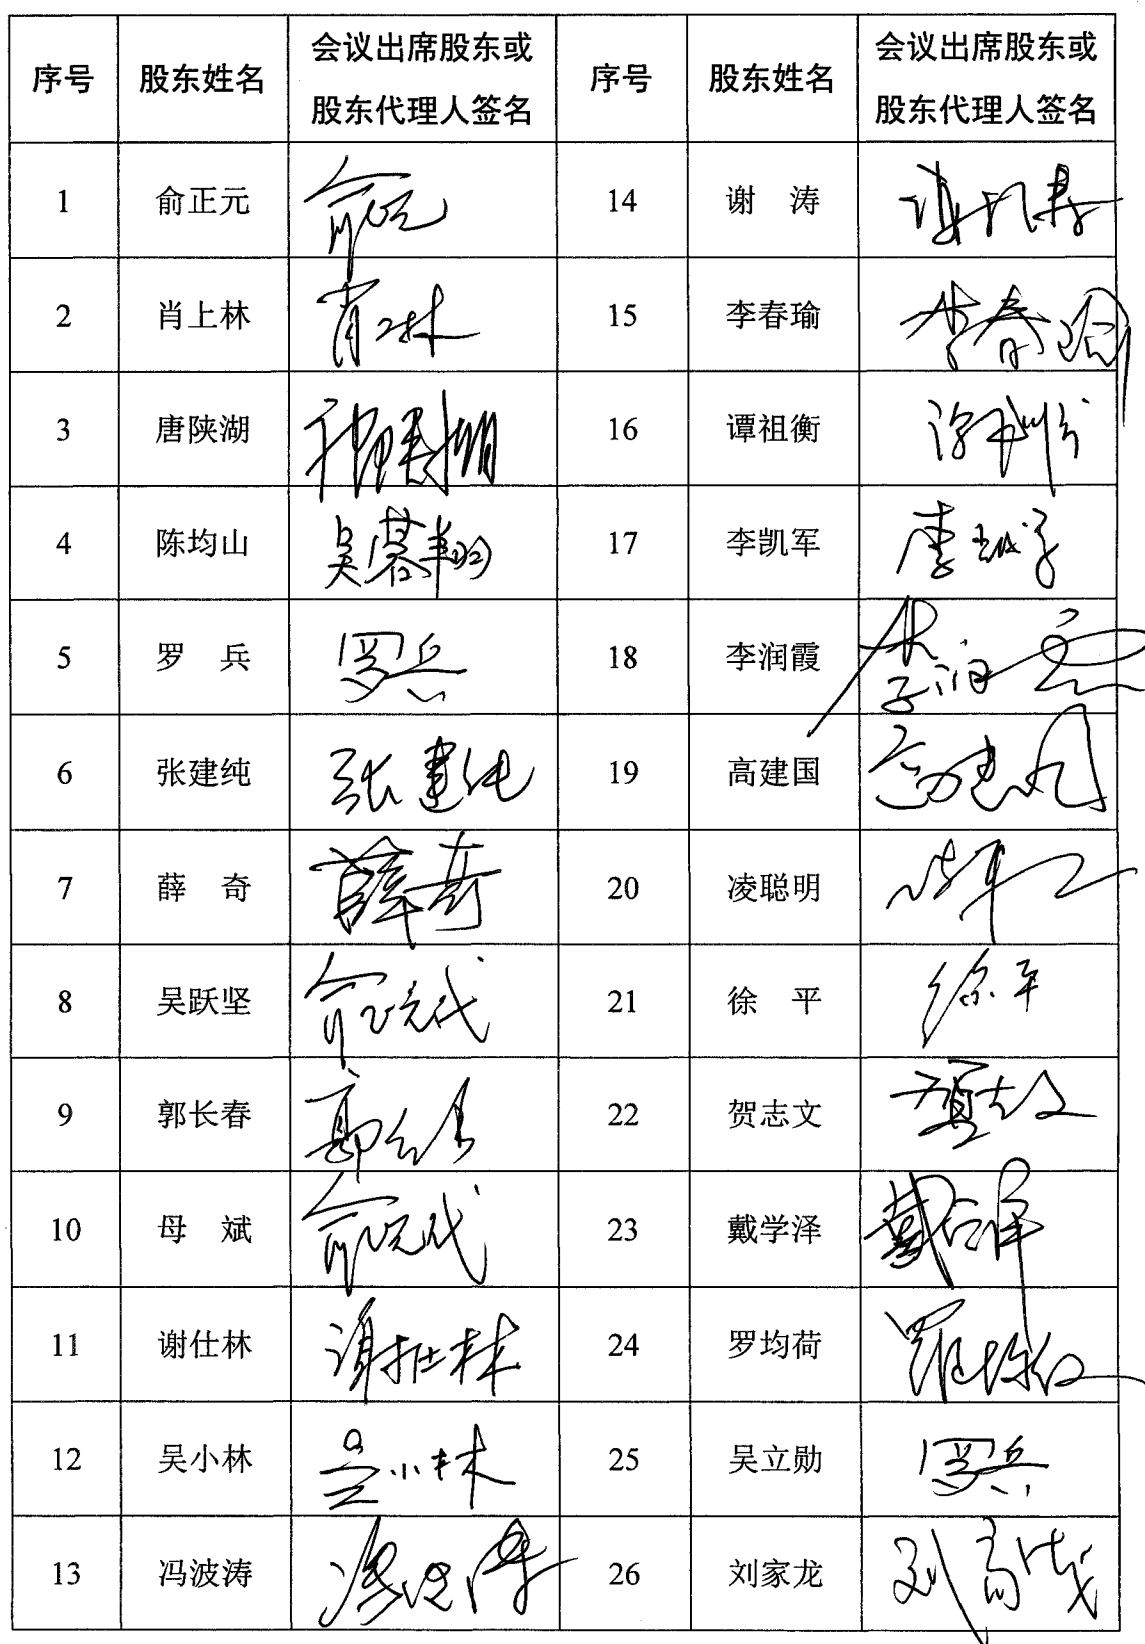 序号 股东姓名 会议出席股东或 序号 股东姓名 会议出席股东或
股东代理人签名 股东代理人签名
1 俞正元 14 谢 涛
2 肖上林 肖上林 15 李春瑜 李春瑜
3 唐陕湖 16 谭祖衡
4 陈均山 吴慕翔 17 李凯军
5 罗 兵 罗兵 18 李润霞 李润霞
6 张建纯 张建纯 19 高建国 高建国
7 薛 奇 薛奇 20 凌聪明
8 吴跃坚 21 徐 平 徐平
9 郭长春 22 贺志文 贺志文
10 母 斌 23 戴学泽 戴学泽
11 谢仕林 谢仕林 24 罗均荷
12 吴小林 吴小林 25 吴立勋 罗兵
13 冯波涛 26 刘家龙